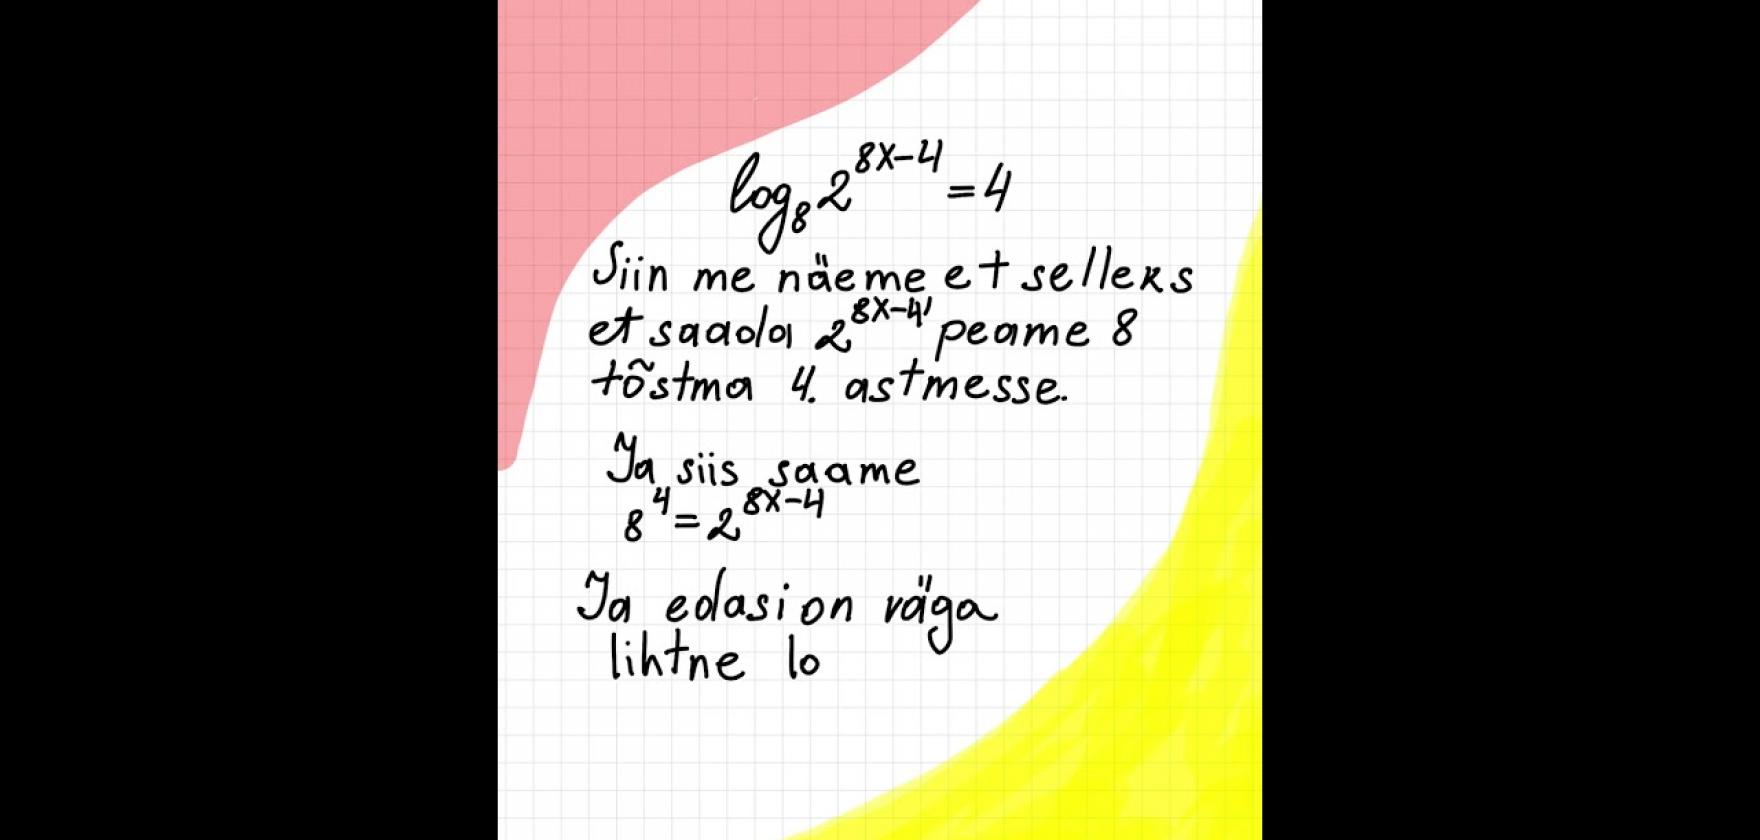 log₈2^(8x-4) = 4
Siin me näeme et selleks
et saada 2^(8x-4) peame 8
tõstma 4. astmesse.
Ja siis saame
8^4 = 2^(8x-4)
Ja edasi on väga
lihtne lo